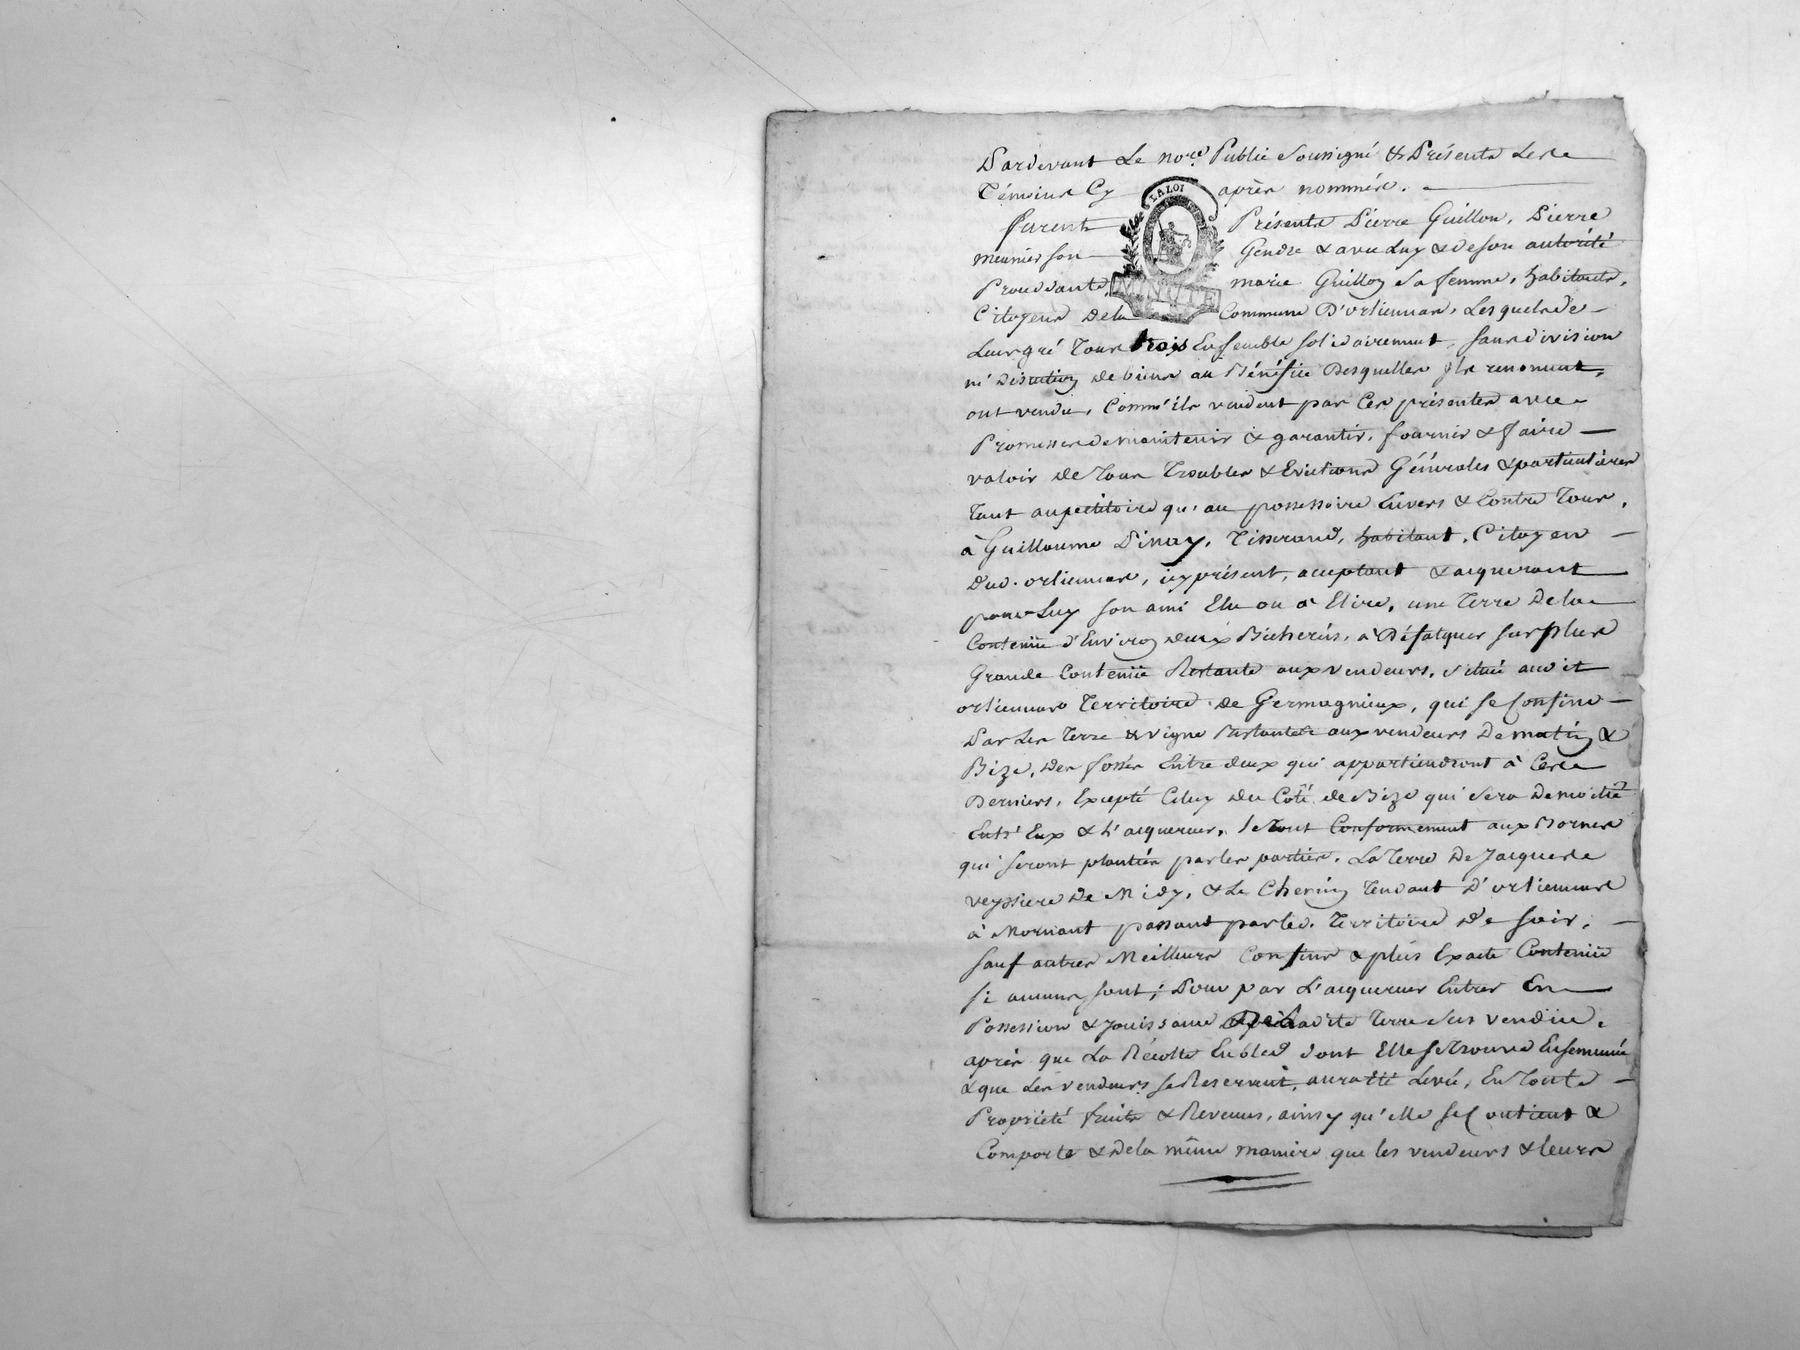 Pardevant Le nore. Public Soussigné & Présents Les
Témoins Cy après nommés.
LA LOI
furent Présents Pierre Guillon, Pierre
meunier son Gendre & avec Luy & de son autorité
Procédante, marie Guillon Sa femme, habitants,
MINUTE
Citoyens dela Commune D'orliennas, Lesquels de
Leur gré Tous trois Ensemble solidairement, sans division
ni Discution de biens au Bénéfice Desquelles ils renoncent,
ont vendu, Comm'ils vendent par Ces présentes avec
Promesses de maintenir & garantir, fournir & faire
valoir de Tous Troubles & Evictions Généralles & particulières
Tant au petitoire qu'au possessoire Envers & Contre Tous,
à Guillaume Pinay, Tisserand, habitant, Citoyen
dud. orliennas, icy présent, acceptant & acquerant
pour Luy son ami Elu ou à Elire, une Terre De la
Contenüe d'Environ deux Bicherés, à Défalquer sur plus
Grande Contenüe Restante aux vendeurs, située audit
orliennas Territoire de Germagnieux, qui se Confine
Par Les Terre & vigne Restantes aux vendeurs De matin &
Bize, des fossés Entre deux qui appartiendront à Ces
Derniers, Excepté Celuy du Coté de Bize qui sera De moitié
Entr'Eux & L'acquereur, le Tout Conformement aux Bornes
qui seront plantées par les parties. La Terre De Jacques
veyssiere De Midy, & Le Chemin Tendant D'orlienas
à Mornant passant par led. Territoire De soir,
sauf autres Meilleurs Confins & plus Exacte Contenüe
si aucuns sont; Pour par L'acquereur Entrer En
Possession & Jouissance De Ladite Terre Sus vendüe,
après que La Récolte En bled dont Elle se Trouve Ensemencée
& que Les vendeurs se Reservent, aura été Levée, En Toute
Propriété fruits & Revenus, ainsy qu'elle se Contient &
Comporte & De la même maniere que les vendeurs & leurs